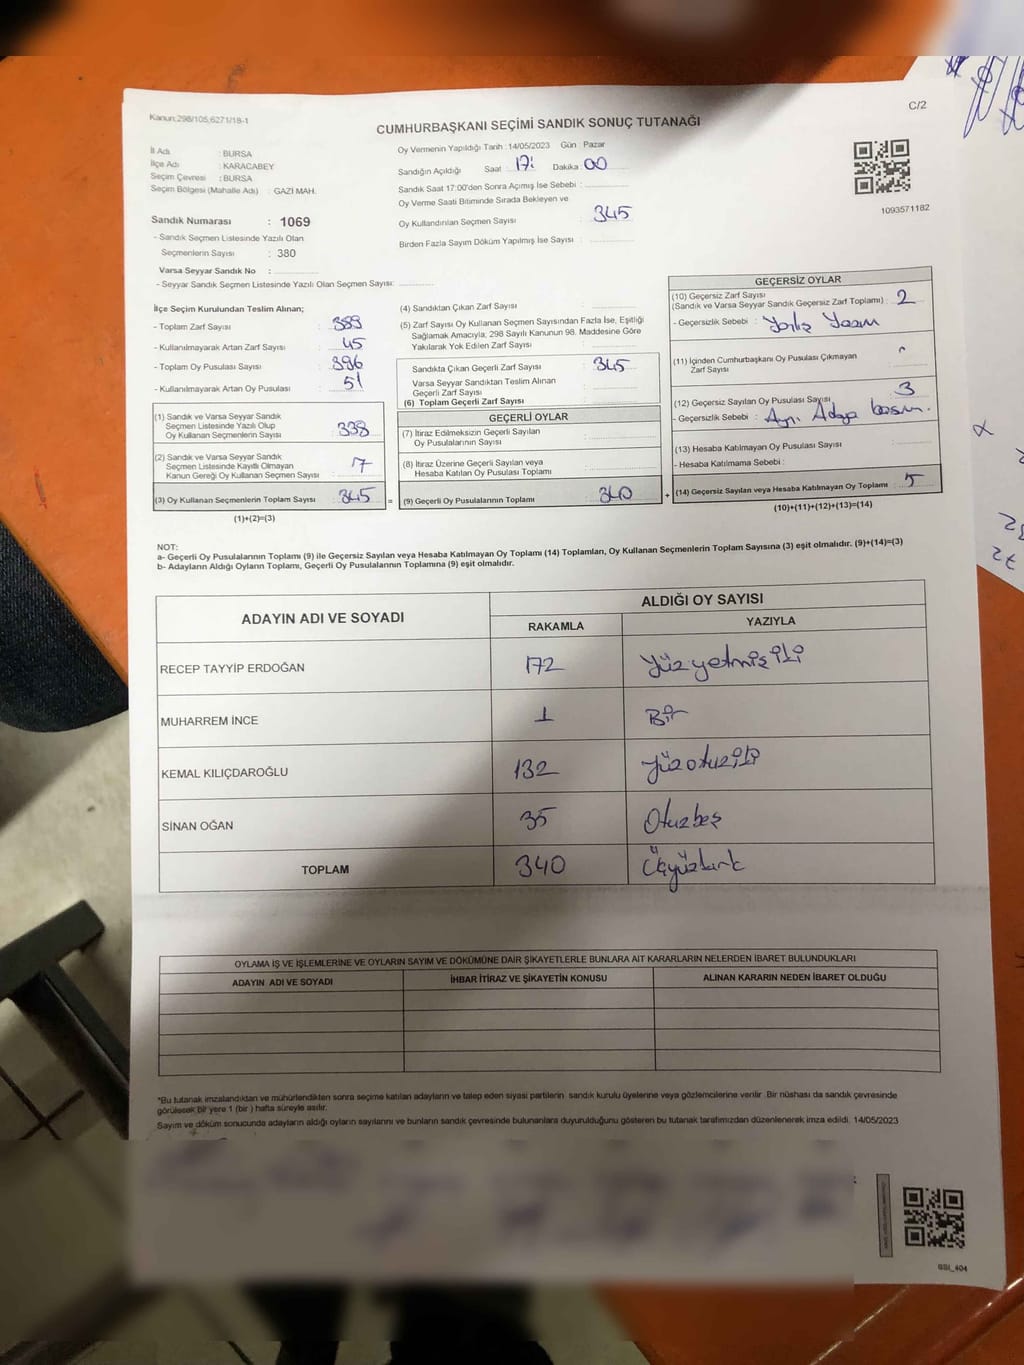 Kanun:298/105,6271/18-1
C/2
CUMHURBAŞKANI SEÇİMİ SANDIK SONUÇ TUTANAĞI
İl Adı : BURSA
İlçe Adı : KARACABEY
Seçim Çevresi : BURSA
Seçim Bölgesi (Mahalle Adı) : GAZİ MAH.
Sandık Numarası : 1069
- Sandık Seçmen Listesinde Yazılı Olan
Seçmenlerin Sayısı : 380
Varsa Seyyar Sandık No :
- Seyyar Sandık Seçmen Listesinde Yazılı Olan Seçmen Sayısı:
Oy Vermenin Yapıldığı Tarih : 14/05/2023 Gün Pazar
Sandığın Açıldığı Saat : 17: Dakika : 00
Sandık Saat 17:00'den Sonra Açımış İse Sebebi :
Oy Verme Saati Bitiminde Sırada Bekleyen ve
Oy Kullandırılan Seçmen Sayısı : 345
Birden Fazla Sayım Döküm Yapılmış İse Sayısı :
1093571182
İlçe Seçim Kurulundan Teslim Alınan;
- Toplam Zarf Sayısı : 389
- Kullanılmayarak Artan Zarf Sayısı : 45
- Toplam Oy Pusulası Sayısı : 396
- Kullanılmayarak Artan Oy Pusulası : 51
(1) Sandık ve Varsa Seyyar Sandık
Seçmen Listesinde Yazılı Olup
Oy Kullanan Seçmenlerin Sayısı : 338
(2) Sandık ve Varsa Seyyar Sandık
Seçmen Listesinde Kayıtlı Olmayan
Kanun Gereği Oy Kullanan Seçmen Sayısı : 7
(3) Oy Kullanan Seçmenlerin Toplam Sayısı : 345
(1)+(2)=(3)
(4) Sandıktan Çıkan Zarf Sayısı :
(5) Zarf Sayısı Oy Kullanan Seçmen Sayısından Fazla İse, Eşitliği
Sağlamak Amacıyla; 298 Sayılı Kanunun 98. Maddesine Göre
Yakılarak Yok Edilen Zarf Sayısı :
Sandıkta Çıkan Geçerli Zarf Sayısı : 345
Varsa Seyyar Sandıktan Teslim Alınan
Geçerli Zarf Sayısı :
(6) Toplam Geçerli Zarf Sayısı :
GEÇERLİ OYLAR
(7) İtiraz Edilmeksizin Geçerli Sayılan
Oy Pusulalarının Sayısı :
(8) İtiraz Üzerine Geçerli Sayılan veya
Hesaba Katılan Oy Pusulası Toplamı :
(9) Geçerli Oy Pusulalarının Toplamı : 340
=
+
GEÇERSİZ OYLAR
(10) Geçersiz Zarf Sayısı
(Sandık ve Varsa Seyyar Sandık Geçersiz Zarf Toplamı) : 2
- Geçersizlik Sebebi :
(11) İçinden Cumhurbaşkanı Oy Pusulası Çıkmayan
Zarf Sayısı
(12) Geçersiz Sayılan Oy Pusulası Sayısı : 3
- Geçersizlik Sebebi : Aynı Adaya basım.
(13) Hesaba Katılmayan Oy Pusulası Sayısı :
- Hesaba Katılmama Sebebi :
(14) Geçersiz Sayılan veya Hesaba Katılmayan Oy Toplamı : 5
(10)+(11)+(12)+(13)=(14)
NOT:
a- Geçerli Oy Pusulalarının Toplamı (9) ile Geçersiz Sayılan veya Hesaba Katılmayan Oy Toplamı (14) Toplamları, Oy Kullanan Seçmenlerin Toplam Sayısına (3) eşit olmalıdır. (9)+(14)=(3)
b- Adayların Aldığı Oyların Toplamı, Geçerli Oy Pusulalarının Toplamına (9) eşit olmalıdır.
ADAYIN ADI VE SOYADI
ALDIĞI OY SAYISI
RAKAMLA YAZIYLA
RECEP TAYYİP ERDOĞAN 172 Yüzyetmişiki
MUHARREM İNCE 1 Bir
KEMAL KILIÇDAROĞLU 132 yüzotuziki
SİNAN OĞAN 35 Otuzbeş
TOPLAM 340 Üçyüzkırk
OYLAMA İŞ VE İŞLEMLERİNE VE OYLARIN SAYIM VE DÖKÜMÜNE DAİR ŞİKAYETLERLE BUNLARA AİT KARARLARIN NELERDEN İBARET BULUNDUKLARI
ADAYIN ADI VE SOYADI İHBAR İTİRAZ VE ŞİKAYETİN KONUSU ALINAN KARARIN NEDEN İBARET OLDUĞU
*Bu tutanak imzalandıktan ve mühürlendikten sonra seçime katılan adayların ve talep eden siyasi partilerin sandık kurulu üyelerine veya gözlemcilerine verilir. Bir nüshası da sandık çevresinde
görülecek bir yere 1 (bir ) hafta süreyle asılır.
Sayım ve döküm sonucunda adayların aldığı oyların sayılarını ve bunların sandık çevresinde bulunanlara duyurulduğunu gösteren bu tutanak tarafımızdan düzenlenerek imza edildi. 14/05/2023
GSI_404